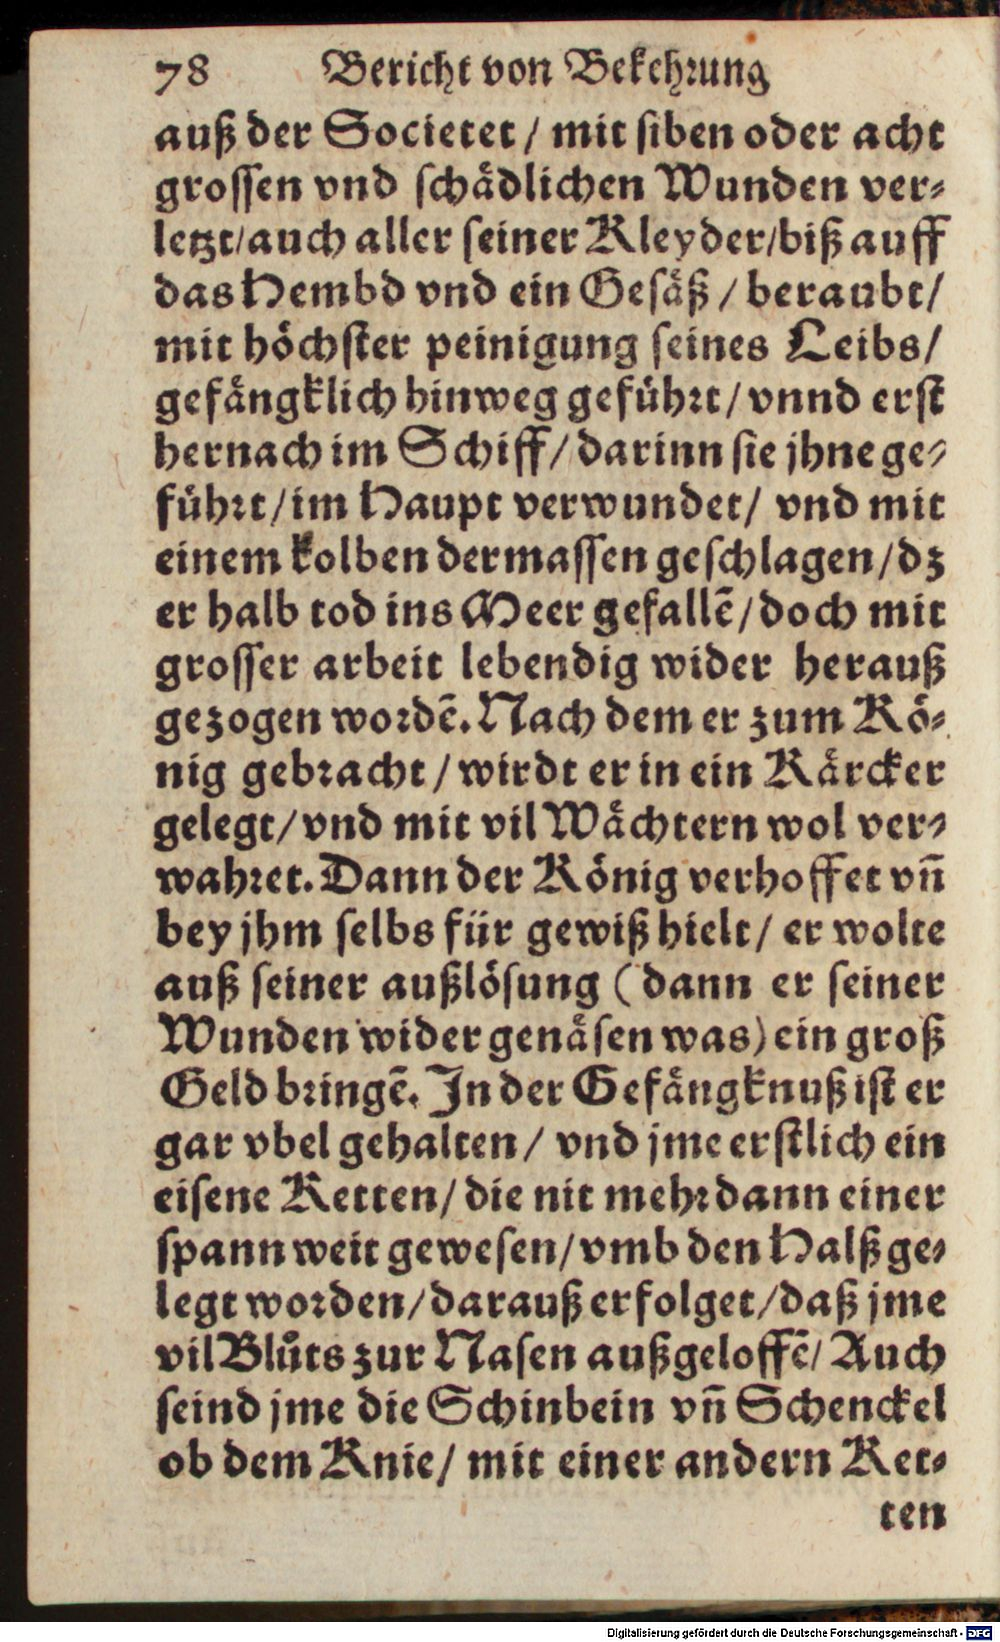 78 Bericht von Bekehrung
auß der Societet / mit siben oder acht
grossen vnd schädlichen Wunden ver⸗
letzt/auch aller seiner Kleyder/biß auff
das Hembd vnd ein Gesäß / beraubt/
mit höchster peinigung seines Leibs/
gefängklich hinweg geführt/ vnnd erst
hernach im Schiff/darinn sie jhne ge⸗
führt/im Haupt verwundet/ vnd mit
einem kolben dermassen geschlagen/dz
er halb tod ins Meer gefallē/doch mit
grosser arbeit lebendig wider herauß
gezogen wordē. Nach dem er zum Kö⸗
nig gebracht / wirdt er in ein Kärcker
gelegt/vnd mit vil Wächtern wol ver⸗
wahret. Dann der König verhoffet vn̄
bey jhm selbs für gewiß hielt/ er wolte
auß seiner außlösung (dann er seiner
Wunden wider genäsen was) ein groß
Geld bringē. In der Gefängknuß ist er
gar vbel gehalten/ vnd jme erstlich ein
eisene Ketten/die nit mehr dann einer
spann weit gewesen/vmb den Halß ge⸗
legt worden/darauß erfolget/daß jme
vil Blůts zur Nasen außgeloffē/ Auch
seind jme die Schinbein vn̄ Schenckel
ob dem Knie/ mit einer andern Ket⸗
ten
Digitalisierung gefördert durch die Deutsche Forschungsgemeinschaft - DFG